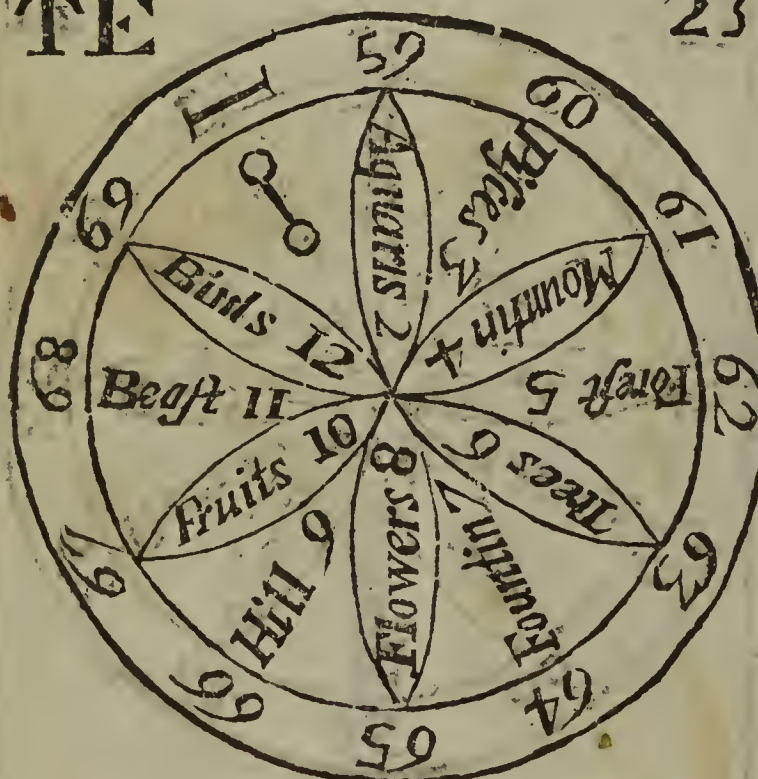 TE
23
I
59
60
61
62
63
64
65
66
67
68
69
Aquarus 2
Piſces 3
Mountin 4
Foreſt 5
Trees 6
Fountin 7
Flowers 8
Hill 9
Fruits 10
Beaſt 11
Birds 12